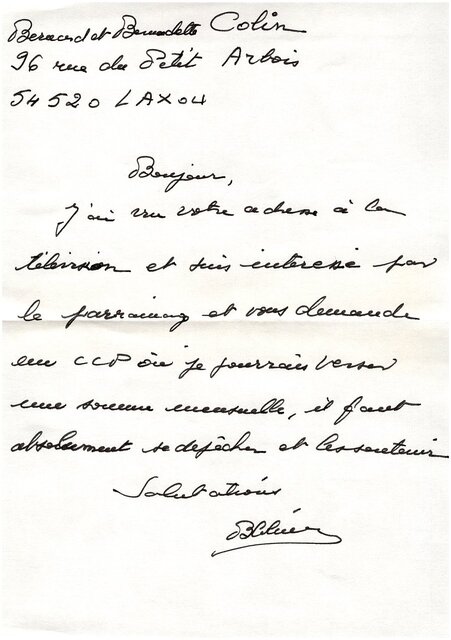 Bernard et Bernadette Colin
96 rue du Petit Arbois
54520 LAXOU
Bonjour,
J'ai vu votre adresse à la
télévision et suis interessé par
le parrainag et vous demande
un CCP où je pourrais verser
une somme mensuelle, il faut
absolument se depêcher et les soutenir
Salutations